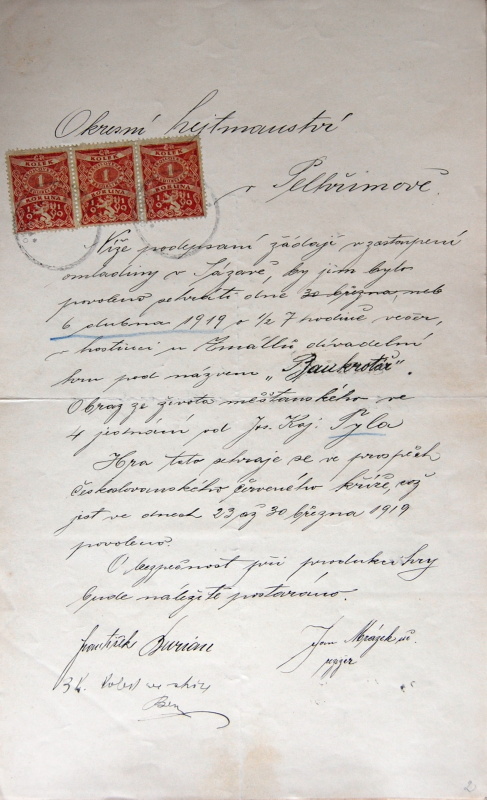 Okresní hejtmanství
v Pelhřimově.
KOLEK 1 KORUNA
KOLEK 1 KORUNA
KOLEK 1 KORUNA
Níže podepsaní žádají v zastoupení
omladiny v Sázavě, by jim bylo
povoleno sehráti dne 30 března, neb
6 dubna 1919 o 1/2 7 hodině večer,
v hostinci u Zmátlů divadelní
hru pod názvem „Bankrotář".
Obraz ze života měšťanského ve
4 jednání od Jos. Kaj: Tyla
Hra tato sehraje se ve prospěch
Československého červeného kříže, což
jest ve dnech 23 až 30 března 1919
povoleno.
O bezpečnost při produkci hry
bude náležitě postaráno.
František Burian
Jan Mrázek
režjer
3 K
2